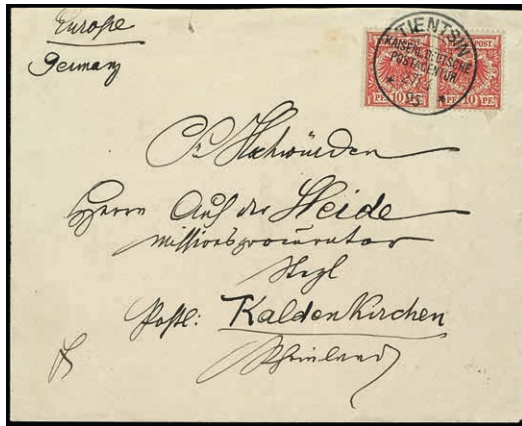 Europe
Germany
POST
TIENTSIN
KAISERL. DEUTSCHE
POSTAGENTUR
PF. 10 PF.
PF. 10 PF.
Sr Hochwürden
Herrn Auf der Heide
Missionsprocurator
Steyl
Postl: Kaldenkirchen
Rheinland